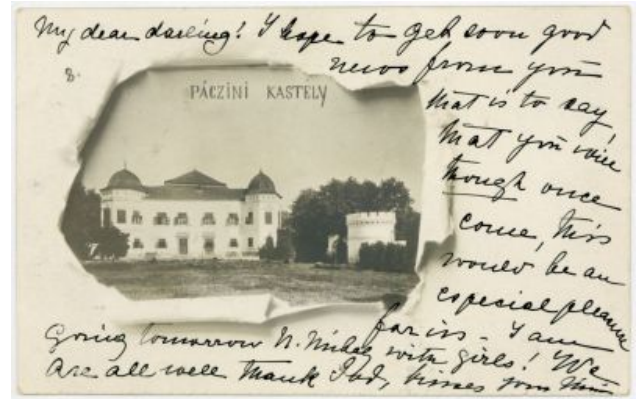 My dear darling! I hope to get soon good
news from you
that is to say,
that you will
though once
come, this
would be an
especial pleasure
for us. I am
Going tomorrow N. Mihály with girls! We
are all well thank God, kisses your
8.
PÁCZINI KASTÉLY